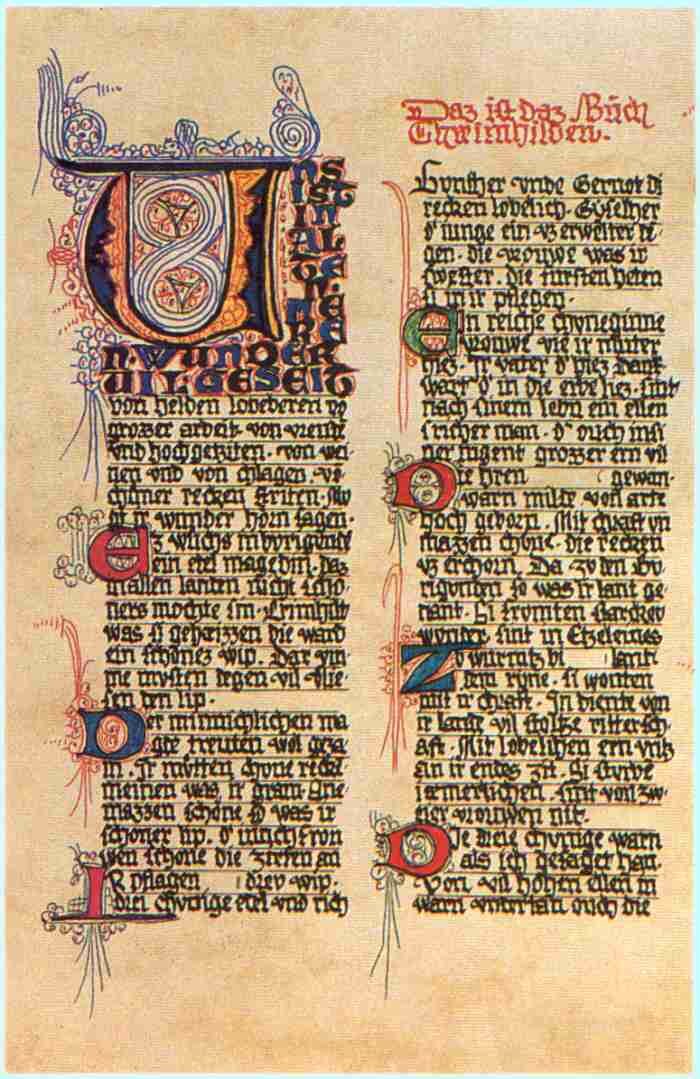 UNS
IST
IN
ALT
EN
MER
EN·WUNDER
UIL·GESEIT
von helden lobeberen vō
grozzer arbeit· von vreude
vnd hochgeziten· von wei
nen vnd von chlagen·
chuner recken striten·
ir wunder horn sagen·
Ez wuchs in
ein etel magedin· daz
in allen lanten nicht scho
ners mochte sin· Crimhilt
was si geheizzen die ward
ein schonez wip· Dar vm
me mvsten degen vil vlie
sen den lip·
Der minnichlichen ma
gde treuten wol geza
m· Ir mvtten chone recke
meinen was ir gram· Ane
mazzen schone was ir
schoner lip· d' iunchfron
wen schone die zirten an
IR pflagen drey wip·
drei chvnige etel vnd rich
Daz ist daz Buch
Chreimhilden·
Gvnther vnde Gernot di
recken lobelich· Gyselher
d' iunge ein vz erwelter te
gen· die vrouwe was ir
swester· die fursten heten
si in ir pflegen·
Ein reiche chvneginne
vrouwe vte ir muter
hiez· Ir vater d' hiez Dank
wart d' in die erbe liez· sint
nach sinem lebn ein ellen
s richer man· d' ouch in si
ner iugent grozzer ern vil
Die hren gewan·
warn milte von arte
hoch geborn· Mit chraft vn
mazzen chone· die recken
vz erchorn· Da zv den Bv
rigonden so was ir lant ge
nant· Si fromten starckev
wunder· sint in Etzeleines
Zo wurmtz bi lant·
dem ryne· si wonten
mit ir chraft· In diente von
ir lande vil stoltze rittersch
aft· Mit lobelichen ern vntz
an ir endes zit· Si sturbe
iemerlichen· sint von zw
eier vrouwen nit·
Die dreie chvnige warn
als ich gesaget han·
von vil hohen ellen in
warn vntertan ouch die